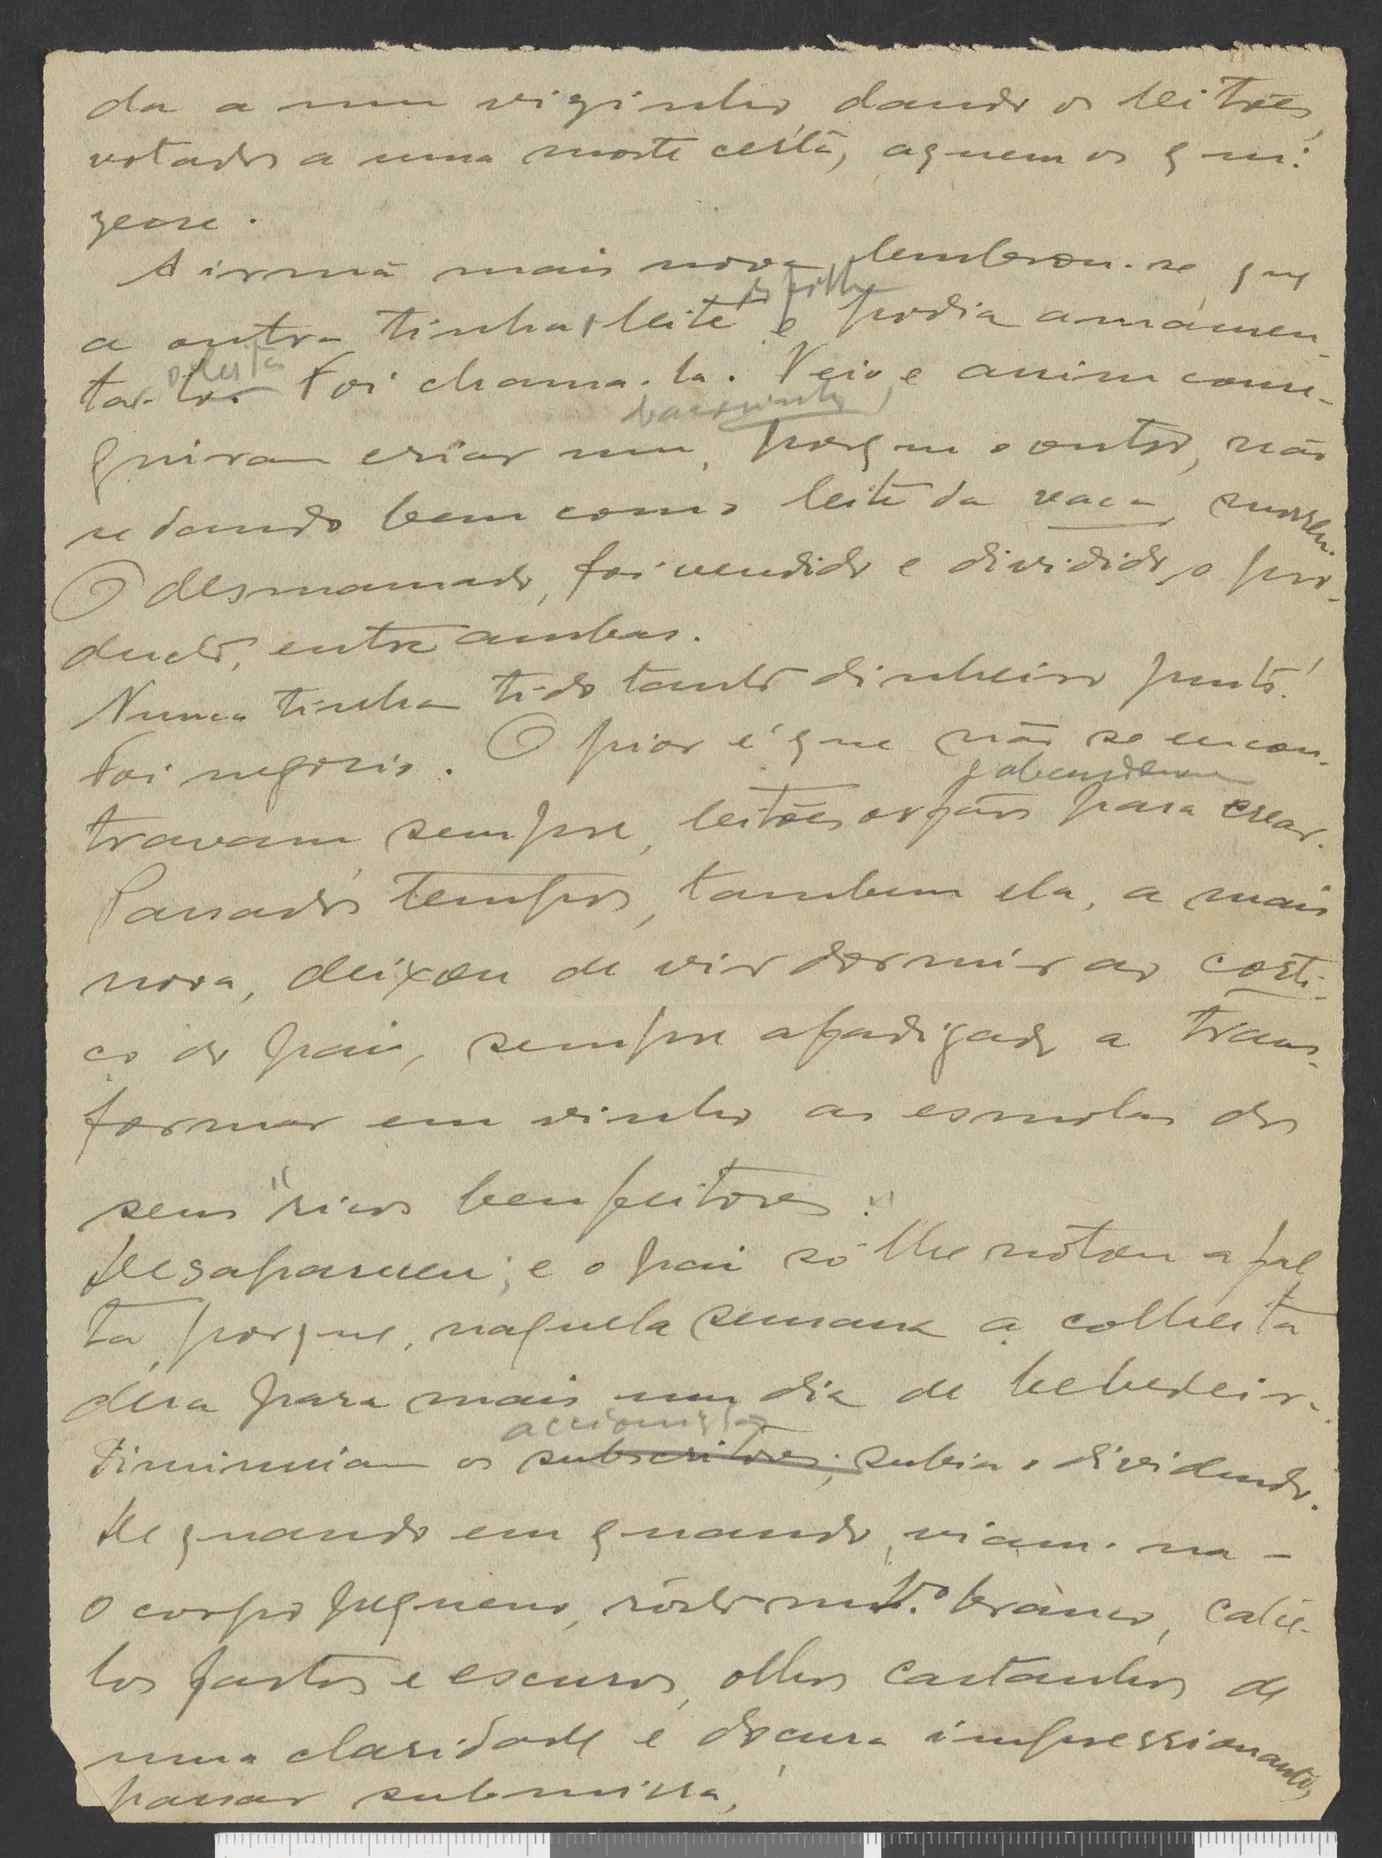 da a um viginho, dando os leitões,
votados a uma morte certa, a quem os qui-
zesse.
A irmã mais nova, lembrou-se que
do filho
a outra tinha leite e podia amamen-
tar-los. Foi chama-la. Veio e assim conse-
baconinho
guiram criar um, porque o outro, não
se dando bem com o leite da vaca, morreu.
O desmamado, foi vendido e dividido, o pro-
ducto, entre ambas.
Nunca tinha tido tanto dinheiro junto!
Foi negocio. O pior é que não se encon-
travam sempre, leitões orfãos para crear.
Passados tempos, tambem ela, a mais
nova, deixou de vir dormir ao corti-
ço do pai, sempre afadigado a trans-
formar em vinho as esmolas dos
seus "ricos bemfeitores".
Desapareceu; e o pai só lhe notou a fal
ta, porque, naquela semana a colheita
dera para mais um dia de bebedeira.
accionistas
Diminuiam os subscritores; subia o dividendo.
De quando em quando, viam-na -
O corpo pequeno, rosto mto. branco, cabe-
los fartos e escuros, olhos castanhos de
uma claridade e doçura impressionantes,
passar submissa,